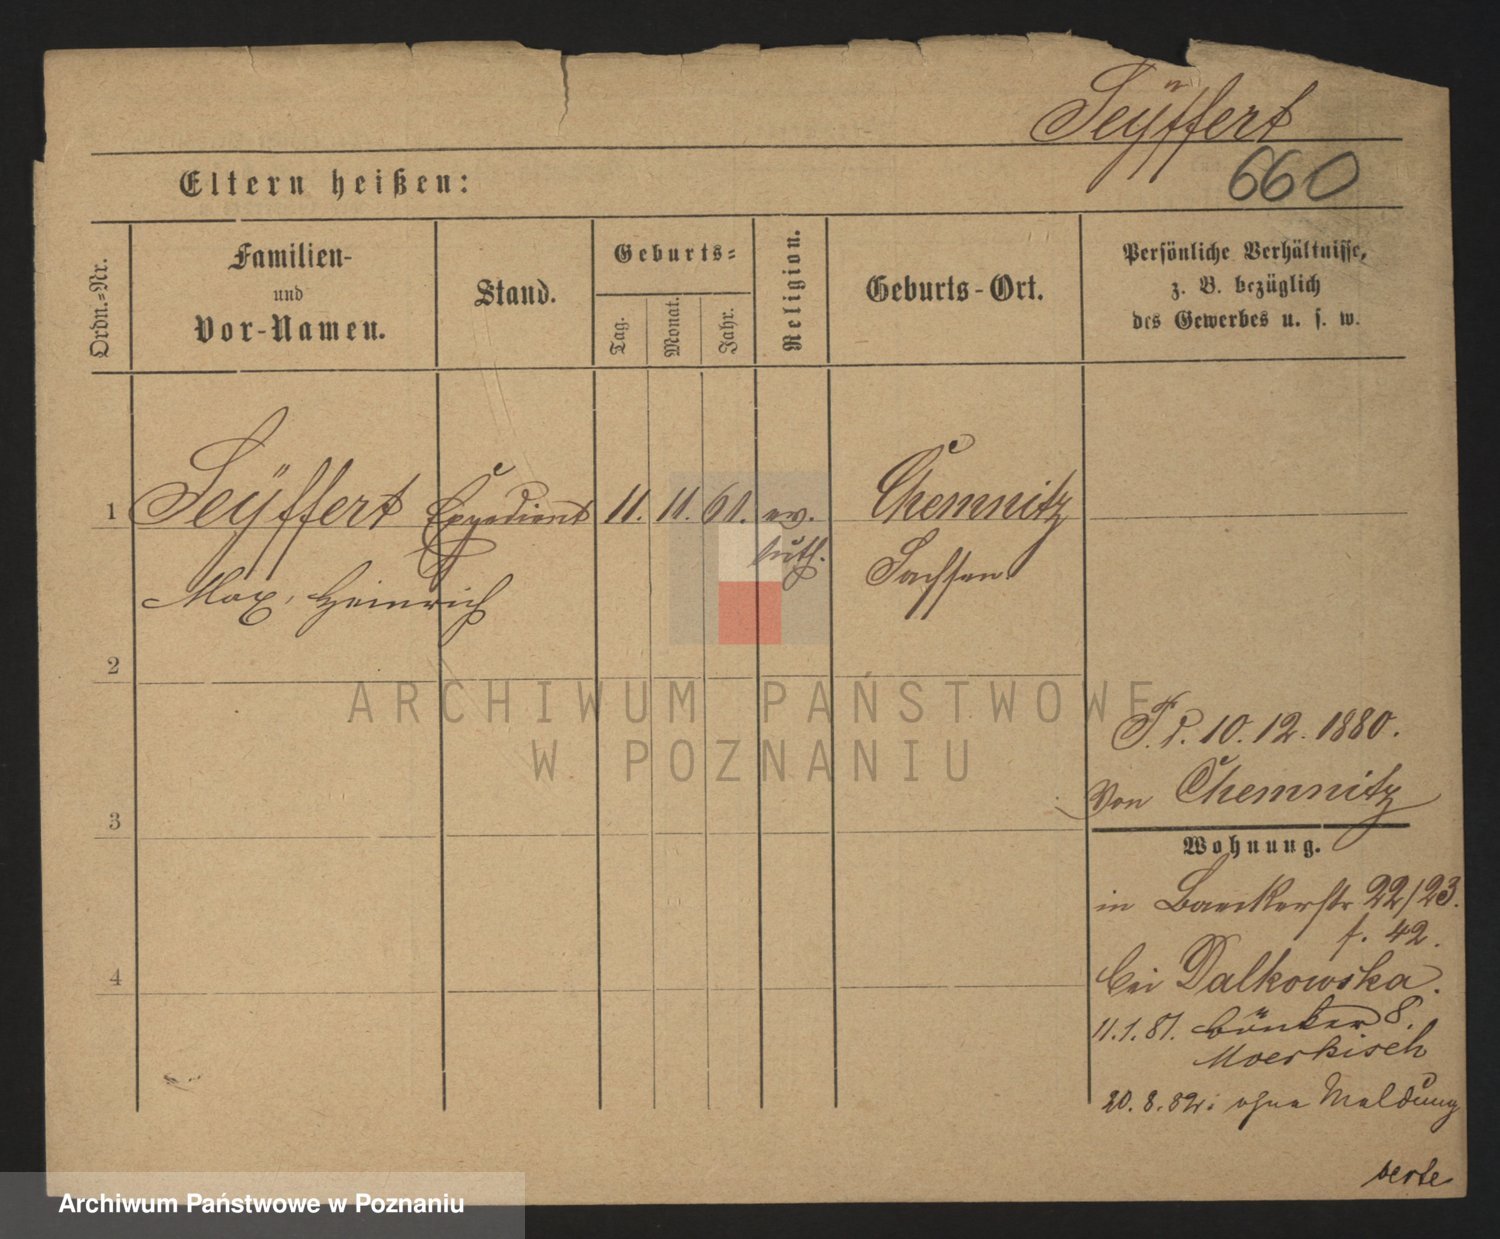 Seÿffert
660
Eltern heißen:
Ordn.-Nr.
Familien-
und
Vor-Namen.
Stand.
Geburts-
Tag.
Monat.
Jahr.
Religion.
Geburts-Ort.
Persönliche Verhältnisse,
z. B. bezüglich
des Gewerbes u. s. w.
1 Seÿffert Expedient 11. 11. 61. ev. Chemnitz
luth. Sachsen
Max, Heinrich
2
ARCHIWUM PAŃSTWOWE
P. 10. 12. 1880.
W POZNANIU
von Chemnitz
3
Wohnung.
in Baeckerstr 22/23.
f. 42.
bei Dalkowska.
4
11.1.81. 8.
20. 8. 82. ohne Meldung
verte
Archiwum Państwowe w Poznaniu